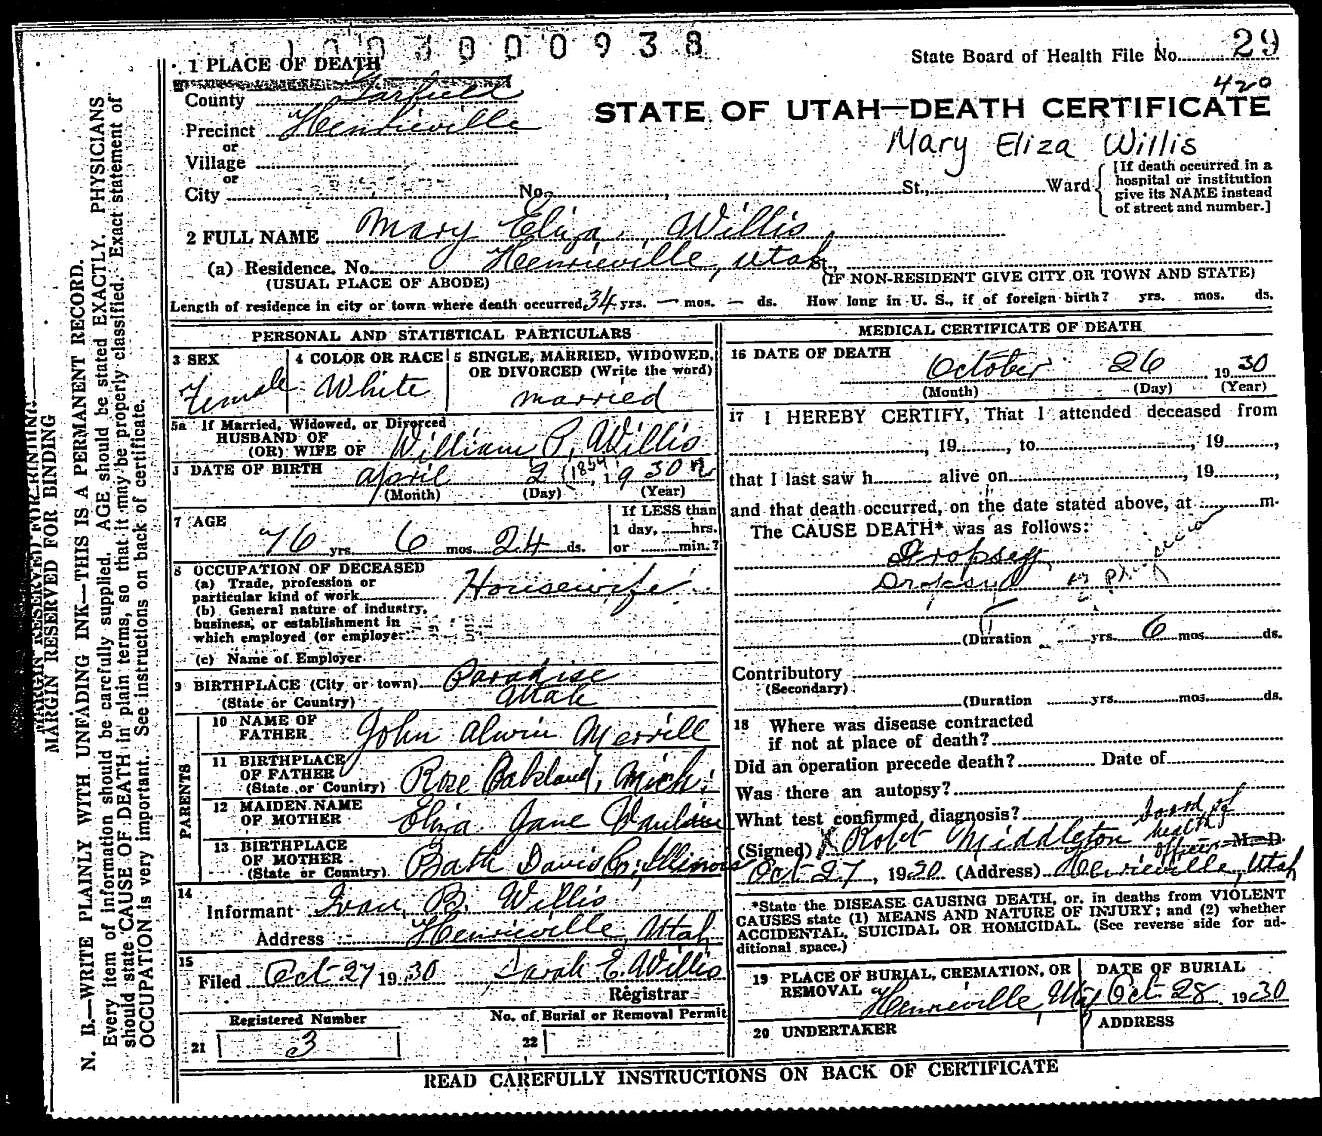 1003000938
State Board of Health File No. 29
420
1 PLACE OF DEATH
County Garfield
STATE OF UTAH—DEATH CERTIFICATE
Precinct Henrieville
Mary Eliza Willis
or
Village
or
City No. St., Ward
[If death occurred in a
hospital or institution
give its NAME instead
of street and number.]
2 FULL NAME Mary Eliza Willis
(a) Residence. No. Henrieville, Utah
(USUAL PLACE OF ABODE) (IF NON-RESIDENT GIVE CITY OR TOWN AND STATE)
Length of residence in city or town where death occurred 34 yrs. — mos. — ds. How long in U. S., if of foreign birth? yrs. mos. ds.
PERSONAL AND STATISTICAL PARTICULARS
3 SEX
Female
4 COLOR OR RACE
White
5 SINGLE, MARRIED, WIDOWED,
OR DIVORCED (Write the word)
married
5a If Married, Widowed, or Divorced
HUSBAND OF
(OR) WIFE OF William P. Willis
DATE OF BIRTH April 2 (1854) 1930
(Month) (Day) (Year)
7 AGE
76 yrs. 6 mos. 24 ds.
If LESS than
1 day, hrs.
or min.?
8 OCCUPATION OF DECEASED
(a) Trade, profession or
particular kind of work Housewife
(b) General nature of industry,
business, or establishment in
which employed (or employer)
(c) Name of Employer
9 BIRTHPLACE (City or town) Paradise
(State or Country) Utah
PARENTS
10 NAME OF
FATHER John Alwin Merrill
11 BIRTHPLACE
OF FATHER
(State or Country) Rose Oakland, Mich.
12 MAIDEN NAME
OF MOTHER Eliza Jane
13 BIRTHPLACE
OF MOTHER
(State or Country) Bath Davis Co. Illinois
14
Informant Ivan B. Willis
Address Henrieville, Utah
15
Filed Oct-27 1930 Sarah E. Willis
Registrar
Registered Number
21 3
No. of Burial or Removal Permit
22
MEDICAL CERTIFICATE OF DEATH
16 DATE OF DEATH
October 26 1930
(Month) (Day) (Year)
17 I HEREBY CERTIFY, That I attended deceased from
, 19 , to , 19 ,
that I last saw h alive on , 19 ,
and that death occurred, on the date stated above, at m.
The CAUSE DEATH* was as follows:
Dropsey
Dropsy no physician
(Duration yrs. 6 mos. ds.
Contributory
(Secondary)
(Duration yrs. mos. ds.
18 Where was disease contracted
if not at place of death?
Did an operation precede death? Date of
Was there an autopsy?
What test confirmed diagnosis?
(Signed) X Robt Middleton board of health officer M. D.
Oct-27, 1930 (Address) Henrieville, Utah
*State the DISEASE CAUSING DEATH, or, in deaths from VIOLENT
CAUSES state (1) MEANS AND NATURE OF INJURY; and (2) whether
ACCIDENTAL, SUICIDAL OR HOMICIDAL. (See reverse side for ad-
ditional space.)
19 PLACE OF BURIAL, CREMATION, OR
REMOVAL Henrieville, Utah
DATE OF BURIAL
Oct-28 1930
20 UNDERTAKER
ADDRESS
READ CAREFULLY INSTRUCTIONS ON BACK OF CERTIFICATE
MARGIN RESERVED FOR BINDING
N. B.—WRITE PLAINLY WITH UNFADING INK—THIS IS A PERMANENT RECORD.
Every item of information should be carefully supplied. AGE should be stated EXACTLY. PHYSICIANS
should state CAUSE OF DEATH in plain terms, so that it may be properly classified. Exact statement of
OCCUPATION is very important. See instructions on back of certificate.